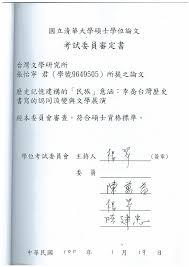 國立清華大學碩士學位論文
考試委員審定書
台灣文學研究所
張怡寧 君 (學號9649505) 所提之論文
歷史記憶建構的「民族」意涵：李喬台灣歷史
書寫的認同流變與文學展演
經本委員會審查，符合碩士資格標準。
學位考試委員會 主持人 (簽章)
委員
陳萬益
中華民國 年 1 月 19 日